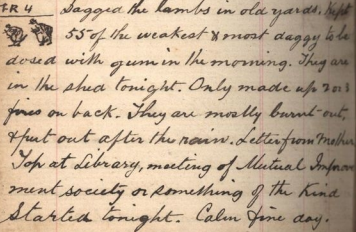 FR 4 Dagged the lambs in old yards. Kept
55 of the weakest & most daggy to be
dosed with gum in the morning. They are
in the shed tonight. Only made up 2 or 3
fires on back. They are mostly burnt out,
& put out after the rain. Letter from Mother
Top at Library, meeting of Mutual Improve
ment society or something of the Kind
Started tonight. Calm fine day.